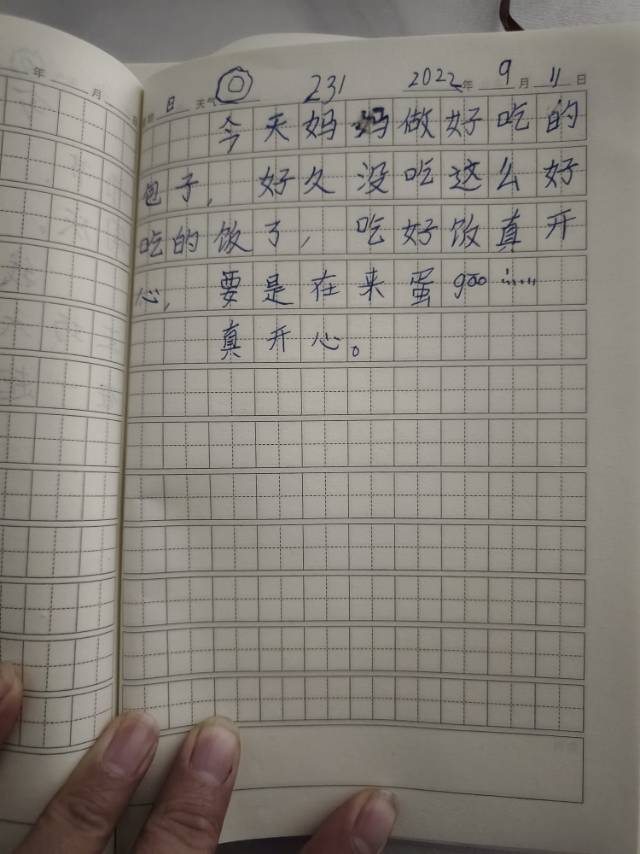 日 天气 231 2022年 9月 11日
今天妈妈做好吃的
包子，好久没吃这么好
吃的饭了，吃好饭真开
心，要是在来蛋gao……
真开心。